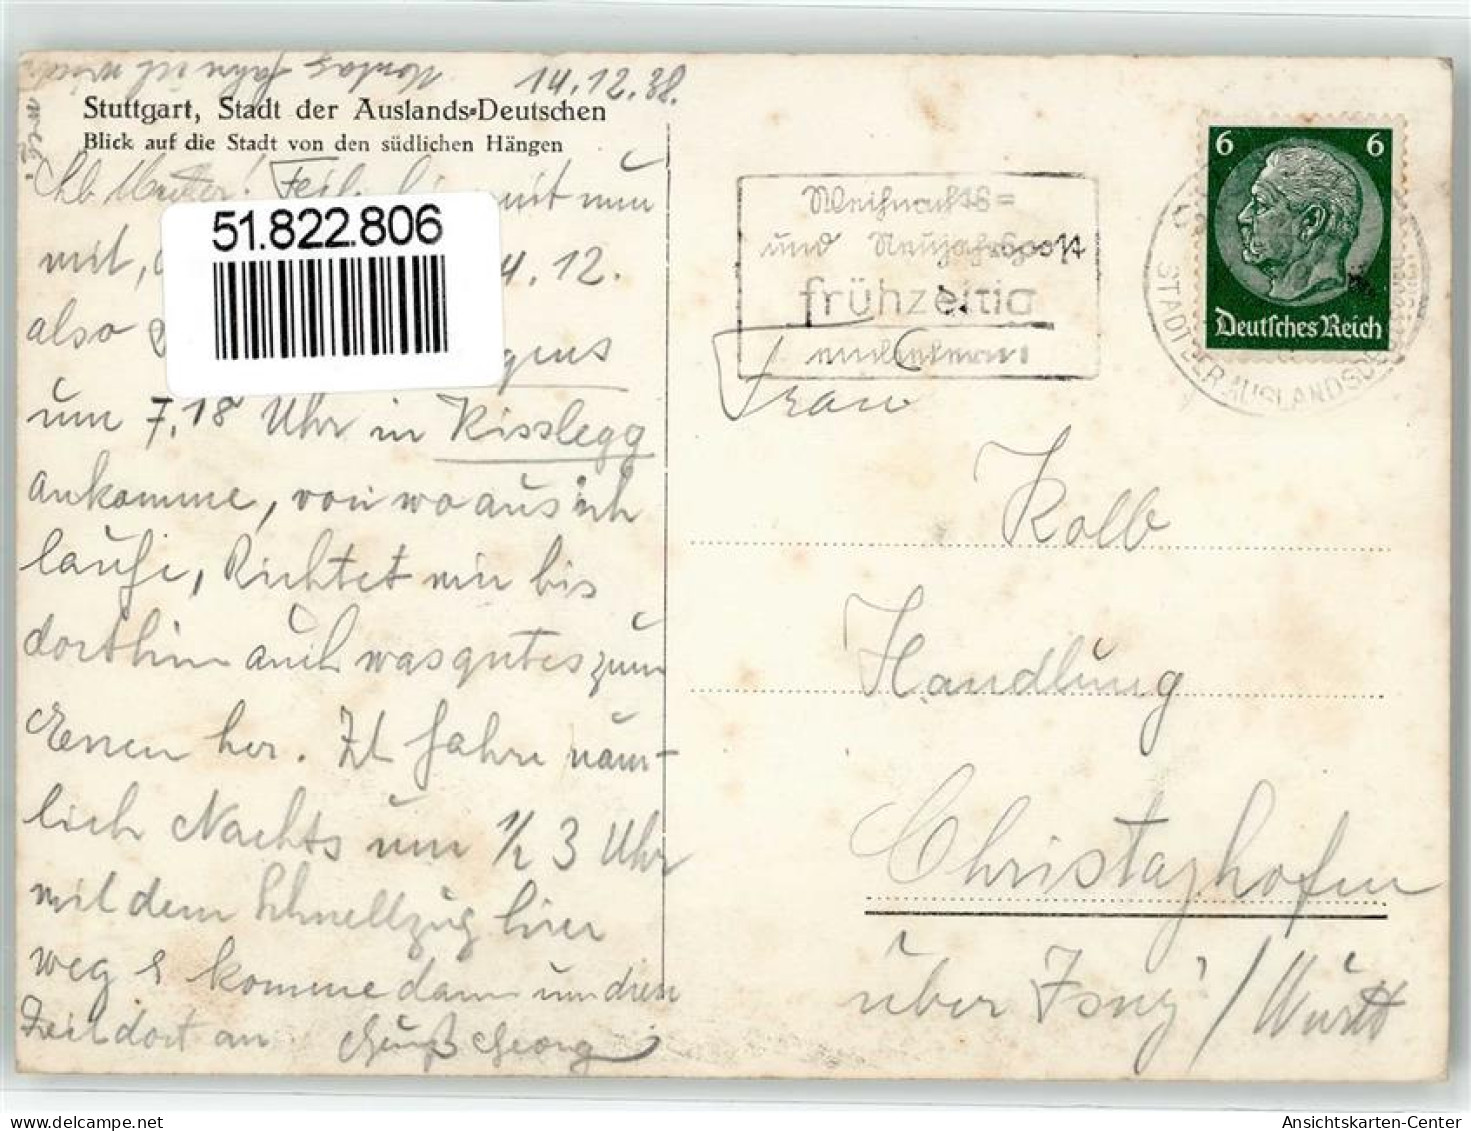 Montag fahre ich wieder
weg.
14.12.38.
Stuttgart, Stadt der Auslands-Deutschen
Blick auf die Stadt von den südlichen Hängen
Lb Mutter! Teile mit nun
mit, 4.12.
also gens
um 7.18 Uhr in Kisslegg
ankomme, von wo aus ich
laufe, Richtet mir bis
dorthin auch was gutes zum
Essen her. Ich fahre näm-
lich Nachts um 1/2 3 Uhr
mit dem Schnellzug hier
weg & komme dann um diese
Zeit dort an Gruß Georg
51.822.806
Weihnachts=
und Neujahrspost
frühzeitig
einliefern!
6 6
Deutsches Reich
STADT DER AUSLANDSDE
Frau
Kolb
Handlung
Christazhofen
über Isny / Württ
Ansichtskarten-Center